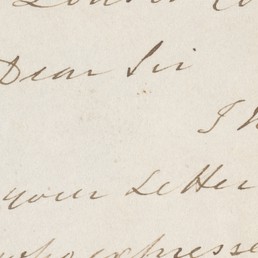 Dear Sir
I
your Letter
who expresse